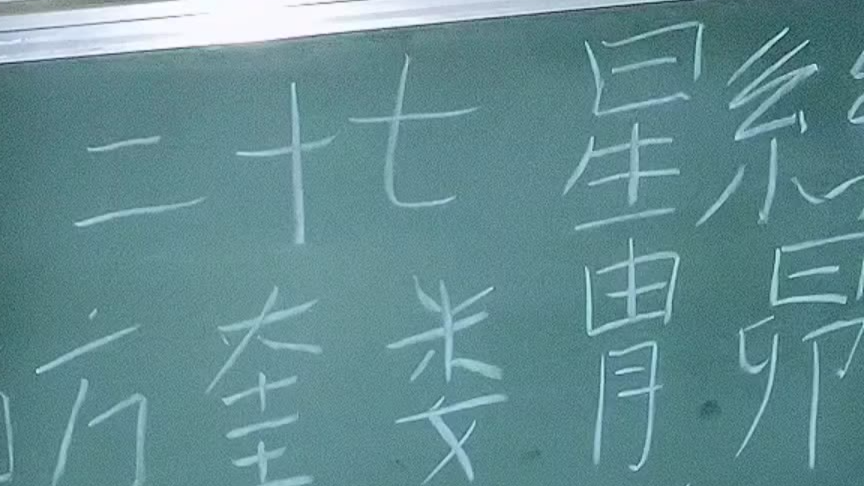 二十七星
奎娄胃昴